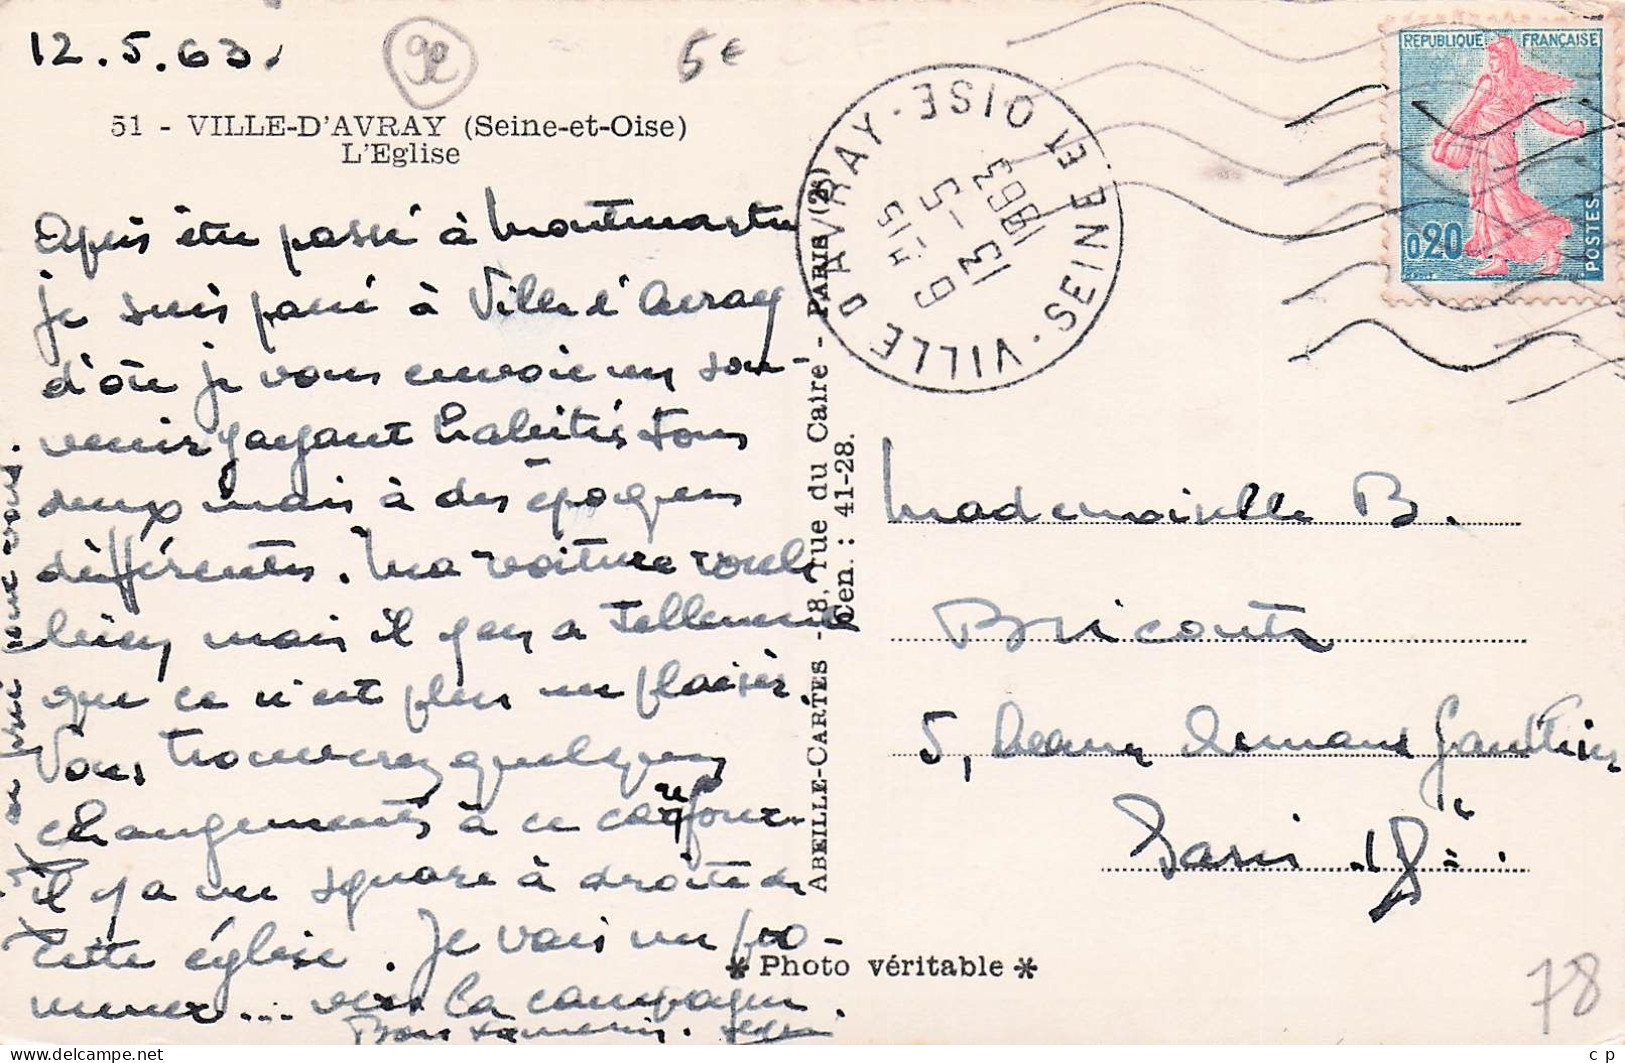 12.5.63.
92
5€
51 - VILLE-D'AVRAY (Seine-et-Oise)
L'Eglise
Après être passé à Montmartre
je suis passé à Ville d'Avray
d'où je vous envoie un sou-
venir y ayant habités tous
deux mais à des époques
différentes. Ma voiture roule
bien mais il y en a tellement
que ce n'est plus un plaisir.
Vous trouverez quelques
changements à ce carrefour.
il y a un square à droite de
cette église. Je vais me pro-
mener... vers la campagne.
Bons
vous.
ABEILLE-CARTES - 8, rue du Caire - PARIS (2e)
Cen. : 41-28.
* Photo véritable *
VILLE D'AVRAY · SEINE ET OISE ·
15H
13 - 5
1963
REPUBLIQUE FRANÇAISE
0,20
POSTES
Mademoiselle B.
Bricout
5, Armand Gauthier
Paris 18e.
78
c p